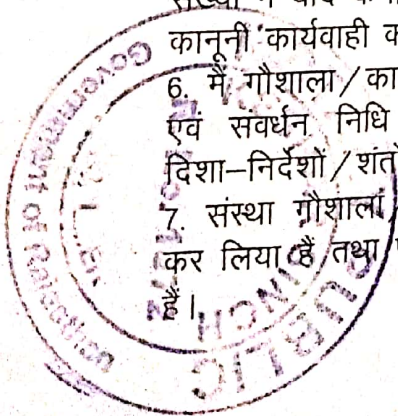 संख्या में
कानूनी कार्यवाही
6. मैं गौशाला/का
एवं संवर्धन निधि
दिशा-निर्देशों/शर्तो
7. संस्था गौशाला
कर लिया है तथा
हैं।
Government of
PUBLIC